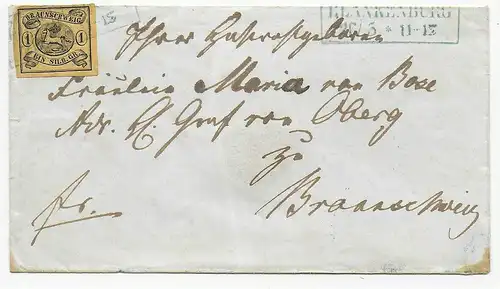 BRAUNSCHWEIG
1 1
EIN SILB. GR.
12
BLANKENBURG
5 * 11-12
Ihrer Hochwohlgeboren
Fräulein Maria von Bose
Adr. Graf von Oberg
zu
fr. Braunschweig